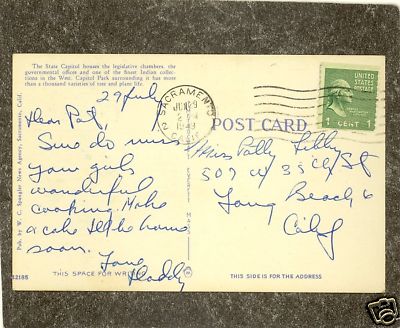 The State Capitol houses the legislative chambers, the
governmental offices and one of the finest Indian collec-
tions in the West. Capitol Park surrounding it has more
than a thousand varieties of tree and plant life.
29 July
Dear Pat,
Sure do miss
your gals
wonderful
cooking. Make
a cake I'll be home
soon. Love
Daddy
12185
THIS SPACE FOR WRITING
Pub. by W. C. Spangler News Agency, Sacramento, Calif.
SACRAMENTO
2
1949
CALIF.
UNITED
STATES
POSTAGE
1 CENT 1
POST CARD
Miss Patty
507 W 35th St
Long Beach 6
Calif
THIS SIDE IS FOR THE ADDRESS